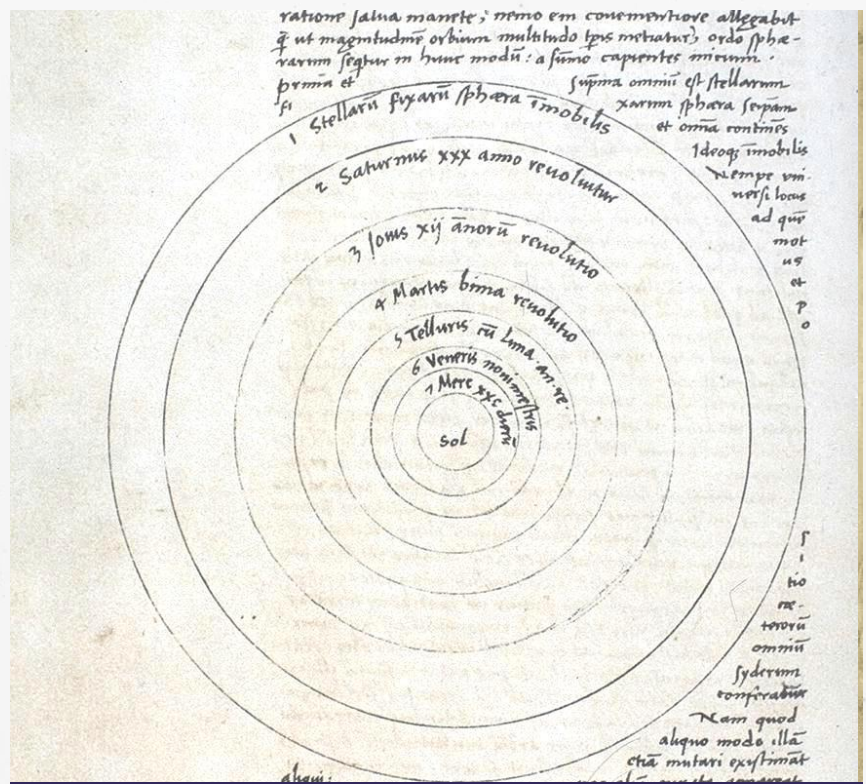 ratione salva manete; nemo em̄ convenientiorē allegabit
q̄ ut magnitudinē orbium multitudo tp̄is metiatur, ordo sphæ-
rarum seq̄tur in hunc modū: a sūmo capientes inicium.
prima et sup̄ma omniū est stellarum
fi xarum sphæra seipsam
et om̄ia continēs
Ideoqȝ īmobilis
Nempe uni-
versi locus
ad quē
mot
us
et
p
o
1 Stellarū fixarū sphæra īmobilis
2 Saturnus xxx anno revoluitur
3 Jovis xij ānorū revolutio
4 Martis bima revolutio
5 Telluris cū Luna an. re
6 Veneris nonimestris
7 Merc xxc dierū
Sol
s
i
tio
cæ-
terorū
omniū
syderum
conferatur
Nam quod
aliquo modo illā
etiā mutari existimāt
aliqui: